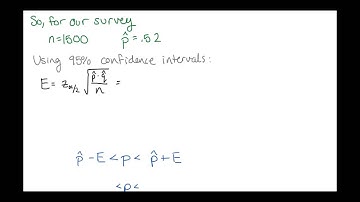 So, for our survey
n=1500 p̂=.52
Using 95% confidence intervals:
E = z_α/2 √(p̂·q̂/n) =
p̂-E < p < p̂+E
<p<